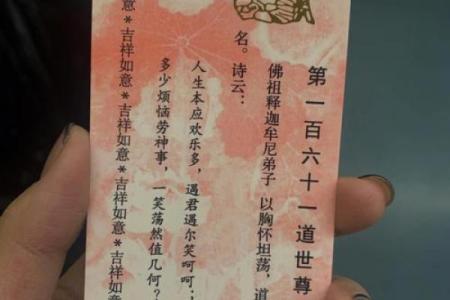 第一百六十一道世尊
佛祖释迦牟尼弟子 以胸怀坦荡，道
名。诗云：
人生本应欢乐多，遇君遇尔笑呵呵；
多少烦恼劳神事，一笑荡然值几何？
吉祥如意*吉祥如意*吉祥如意*吉祥